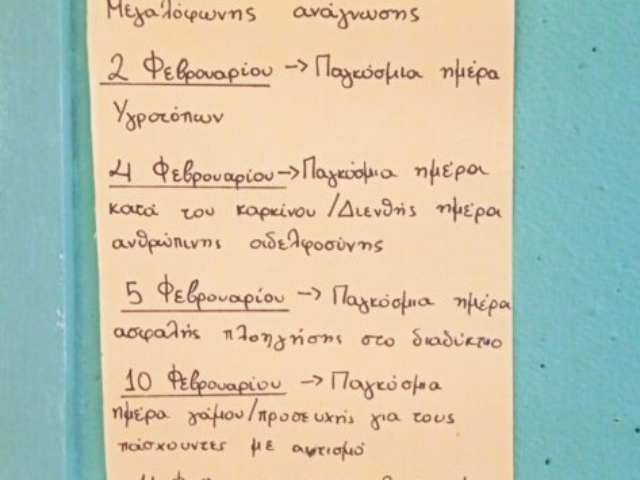 Μεγαλόφωνης ανάγνωσης
2 Φεβρουαρίου -> Παγκόσμια ημέρα
Υγροτόπων
4 Φεβρουαρίου -> Παγκόσμια ημέρα
κατά του καρκίνου / Διεθνής ημέρα
ανθρώπινης αδελφοσύνης
5 Φεβρουαρίου -> Παγκόσμια ημέρα
ασφαλής πλοηγήσης στο διαδίκτυο
10 Φεβρουαρίου -> Παγκόσμα
ημέρα γάμου/προσευχής για τους
πάσχουντες με αυτισμό